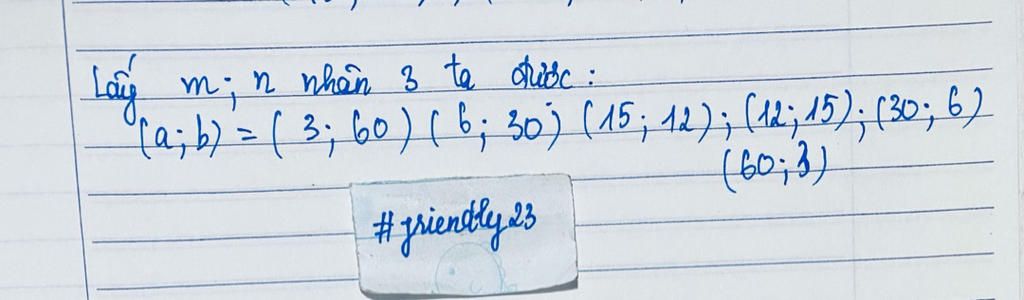 Lấy m; n nhân 3 ta được:
(a; b) = ( 3; 60 ) ( 6; 30 ) (15; 12); (12; 15); (30; 6)
(60; 3)
#friendly23